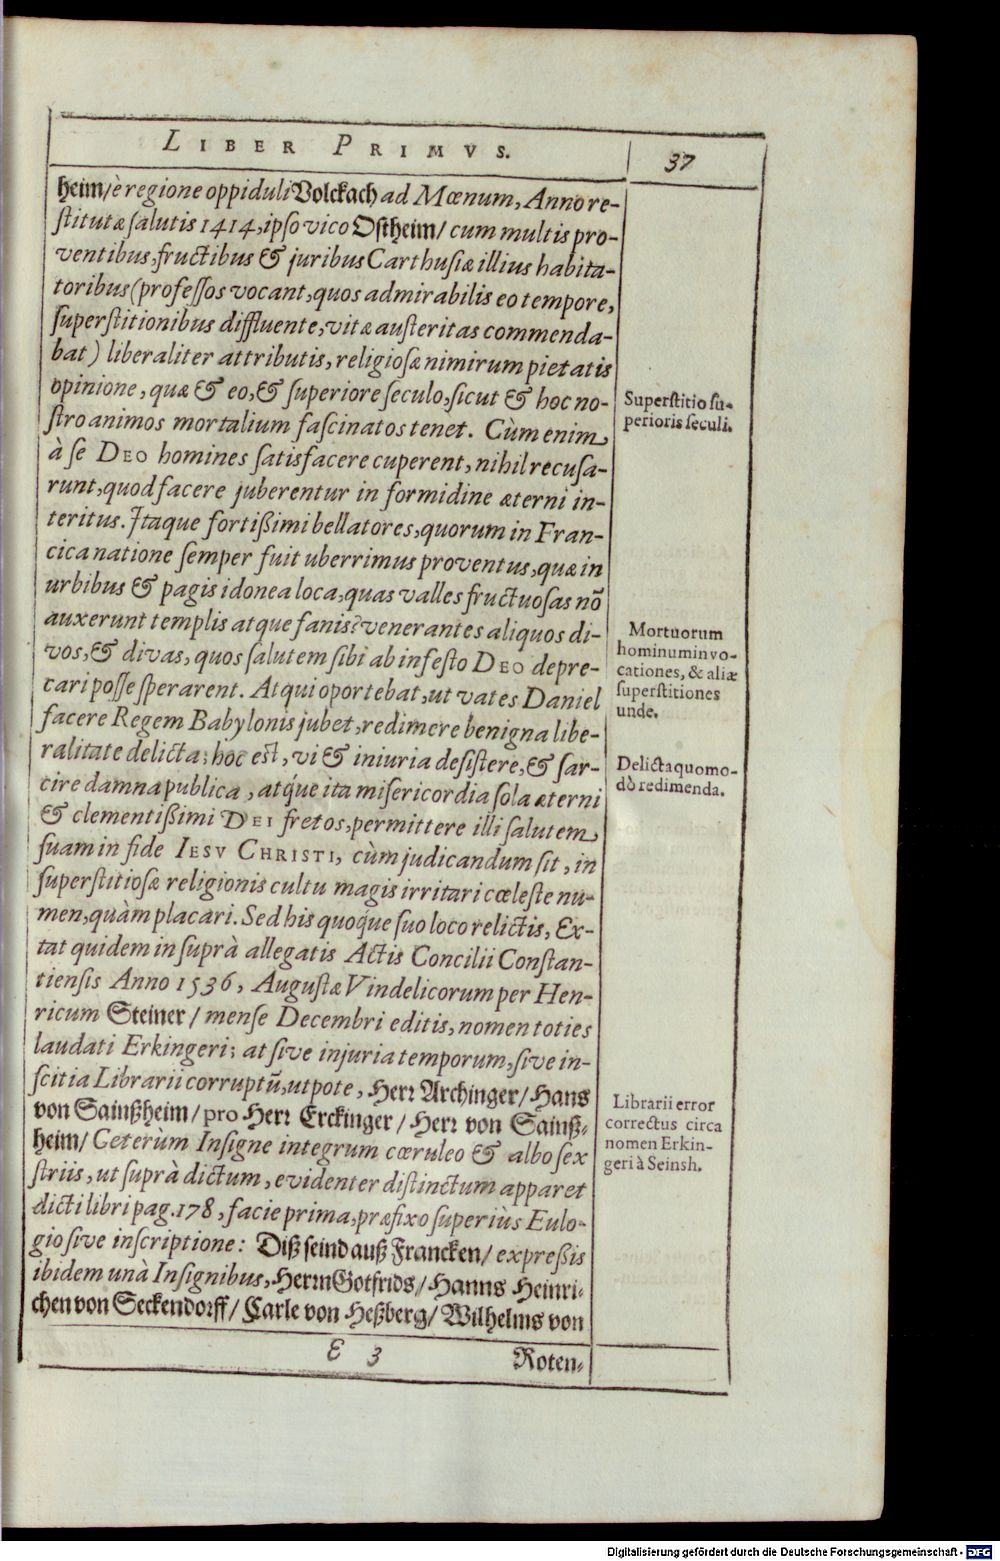 LIBER PRIMVS.
37
heim/ è regione oppiduli Volckach ad Mœnum, Anno re-
stitutæ salutis 1414, ipso vico Ostheim/ cum multis pro-
ventibus, fructibus & juribus Carthusiæ illius habita-
toribus (professos vocant, quos admirabilis eo tempore,
superstitionibus diffluente, vitæ austeritas commenda-
bat) liberaliter attributis, religiosæ nimirum pietatis
opinione, quæ & eo, & superiore seculo, sicut & hoc no-
stro animos mortalium fascinatos tenet. Cùm enim
à se DEO homines satisfacere cuperent, nihil recusa-
runt, quod facere juberentur in formidine æterni in-
teritus. Itaque fortißimi bellatores, quorum in Fran-
cica natione semper fuit uberrimus proventus, quæ in
urbibus & pagis idonea loca, quas valles fructuosas nõ
auxerunt templis atque fanis? venerantes aliquos di-
vos, & divas, quos salutem sibi ab infesto DEO depre-
cari posse sperarent. Atqui oportebat, ut vates Daniel
facere Regem Babylonis jubet, redimere benigna libe-
ralitate delicta; hoc est, vi & iniuria desistere, & sar-
cire damna publica, atq́ue ita misericordia sola æterni
& clementißimi DEI fretos, permittere illi salutem
suam in fide IESV CHRISTI, cùm judicandum sit, in
superstitiosæ religionis cultu magis irritari cœleste nu-
men, quàm placari. Sed his quoq́ue suo loco relictis, Ex-
tat quidem in suprà allegatis Actis Concilii Constan-
tiensis Anno 1536, Augustæ Vindelicorum per Hen-
ricum Steiner/ mense Decembri editis, nomen toties
laudati Erkingeri; at sive injuria temporum, sive in-
scitia Librarii corruptũ, utpote, Herr Archinger/ Hans
von Sainßheim/ pro Herr Erckinger/ Herr von Sainß-
heim/ Ceterùm Insigne integrum cœruleo & albo sex
striis, ut suprà dictum, evidenter distinctum apparet
dicti libri pag. 178, facie prima, præfixo superiùs Eulo-
gio sive inscriptione: Diß seind auß Francken/ expreßis
ibidem unà Insignibus, Herrn Gotfrids/ Hanns Heinri-
chen von Seckendorff/ Carle von Heßberg/ Wilhelms von
E 3
Roten-
Superstitio su-
perioris seculi.
Mortuorum
hominum invo-
cationes, & aliæ
superstitiones
unde.
Delicta quomo-
dò redimenda.
Librarii error
correctus circa
nomen Erkin-
geri à Seinsh.
Digitalisierung gefördert durch die Deutsche Forschungsgemeinschaft - DFG